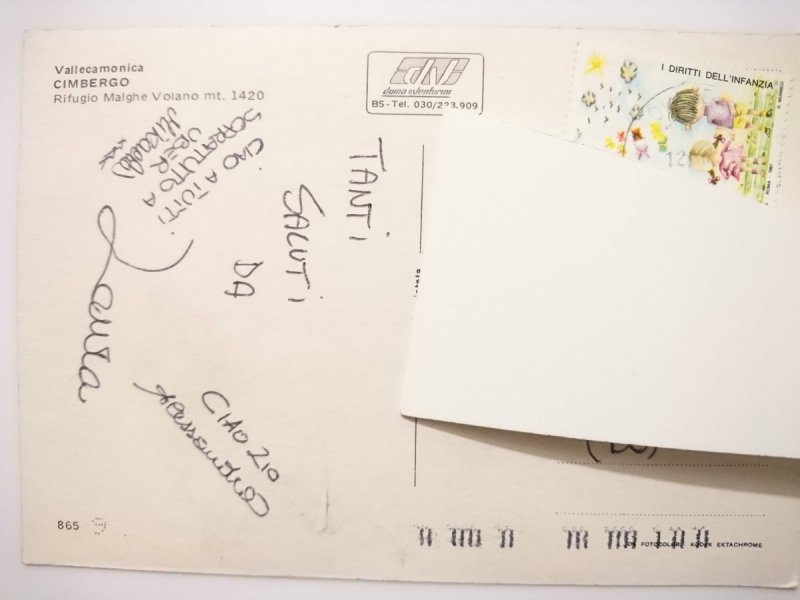 Vallecamonica
CIMBERGO
Rifugio Malghe Volano mt. 1420
BS-Tel. 030/223.909
I DIRITTI DELL'INFANZIA
ROMA
12
CIAO A TUTTI
SOPRATUTTO A
UBER
TANTI
SALUTI
DA
Laura
CIAO ZIO
Alessandro
865
FOTOCOLOR KODAK EKTACHROME